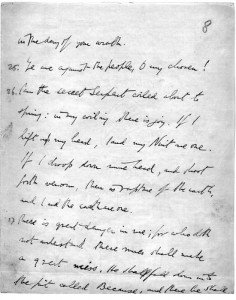 8
in the day of your wrath.
25. Ye are against the people, O my chosen!
26. I am the secret Serpent coiled about to
spring: in my coiling there is joy. If I
lift up my head, I and my Nuit are one.
If I droop down mine head, and shoot
forth venom, then is rapture of the earth,
and I and the earth are one.
27 There is great danger in me; for who doth
not understand these runes shall make
a great miss. He shall fall down into
the pit called Because, and there he shall